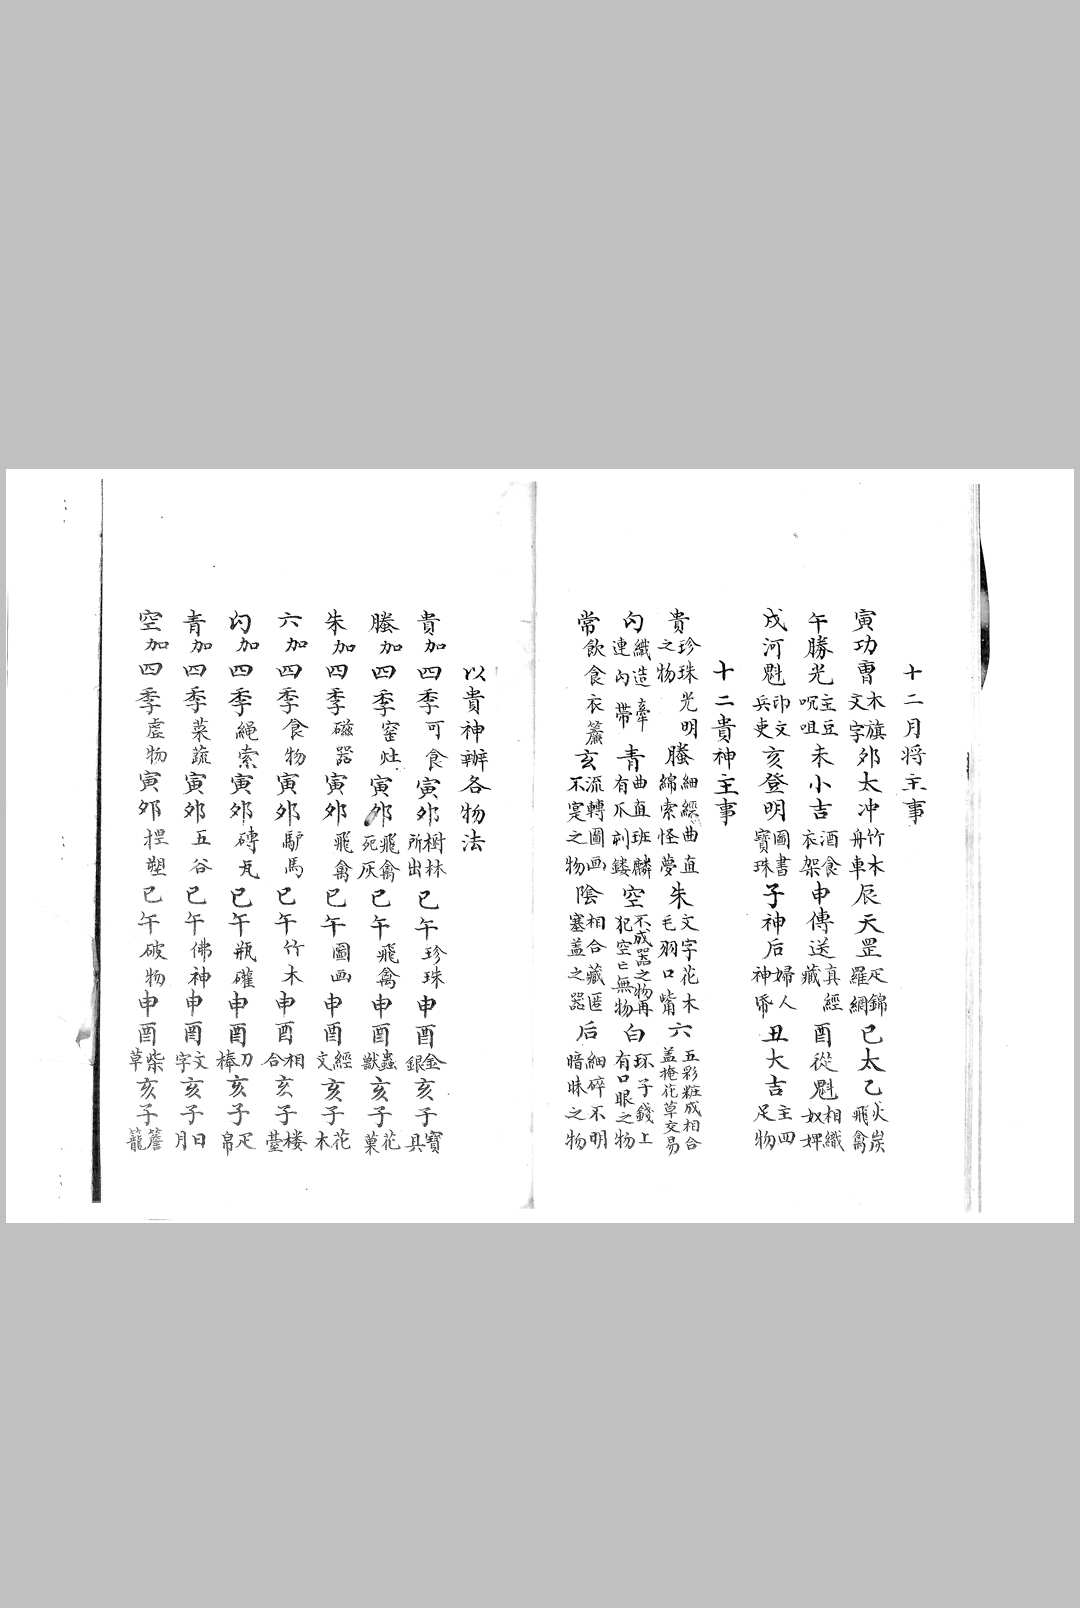 十二月将主事
寅功曹木旗文字夘太冲竹木舟車辰天罡疋錦羅網巳太乙火炭飛禽
午勝光主豆呪咀未小吉酒食衣架申傳送真經藏酉從魁相織奴婢
戌河魁印文兵吏亥登明圖書寶珠子神后婦人神帋丑大吉主四足物
十二貴神主事
貴珍珠光明之物螣細縲曲直綿索怪夢朱文字花木毛羽口觜六五彩粧成相合盖掩花草交易
勾織造牽連勾帶青曲直班麟有爪剖鏤空不成器之物再犯空亡無物白环子錢上有口眼之物
常飲食衣簾玄流轉圖画不寔之物陰相合藏匿塞盖之器后細碎不明暗昧之物
以貴神辦各物法
貴加四季可食寅夘樹林所出巳午珍珠申酉金銀亥子寶具
螣加四季窑灶寅夘飛禽死灰巳午飛禽申酉蟲獸亥子花菓
朱加四季磁器寅夘飛禽巳午圖画申酉經文亥子花木
六加四季食物寅夘馿馬巳午竹木申酉相合亥子楼臺
勾加四季繩索寅夘磚瓦巳午瓶礶申酉刀棒亥子疋帛
青加四季菜蔬寅夘五谷巳午佛神申酉文字亥子日月
空加四季虛物寅夘捏塑巳午破物申酉柴草亥子簷籠